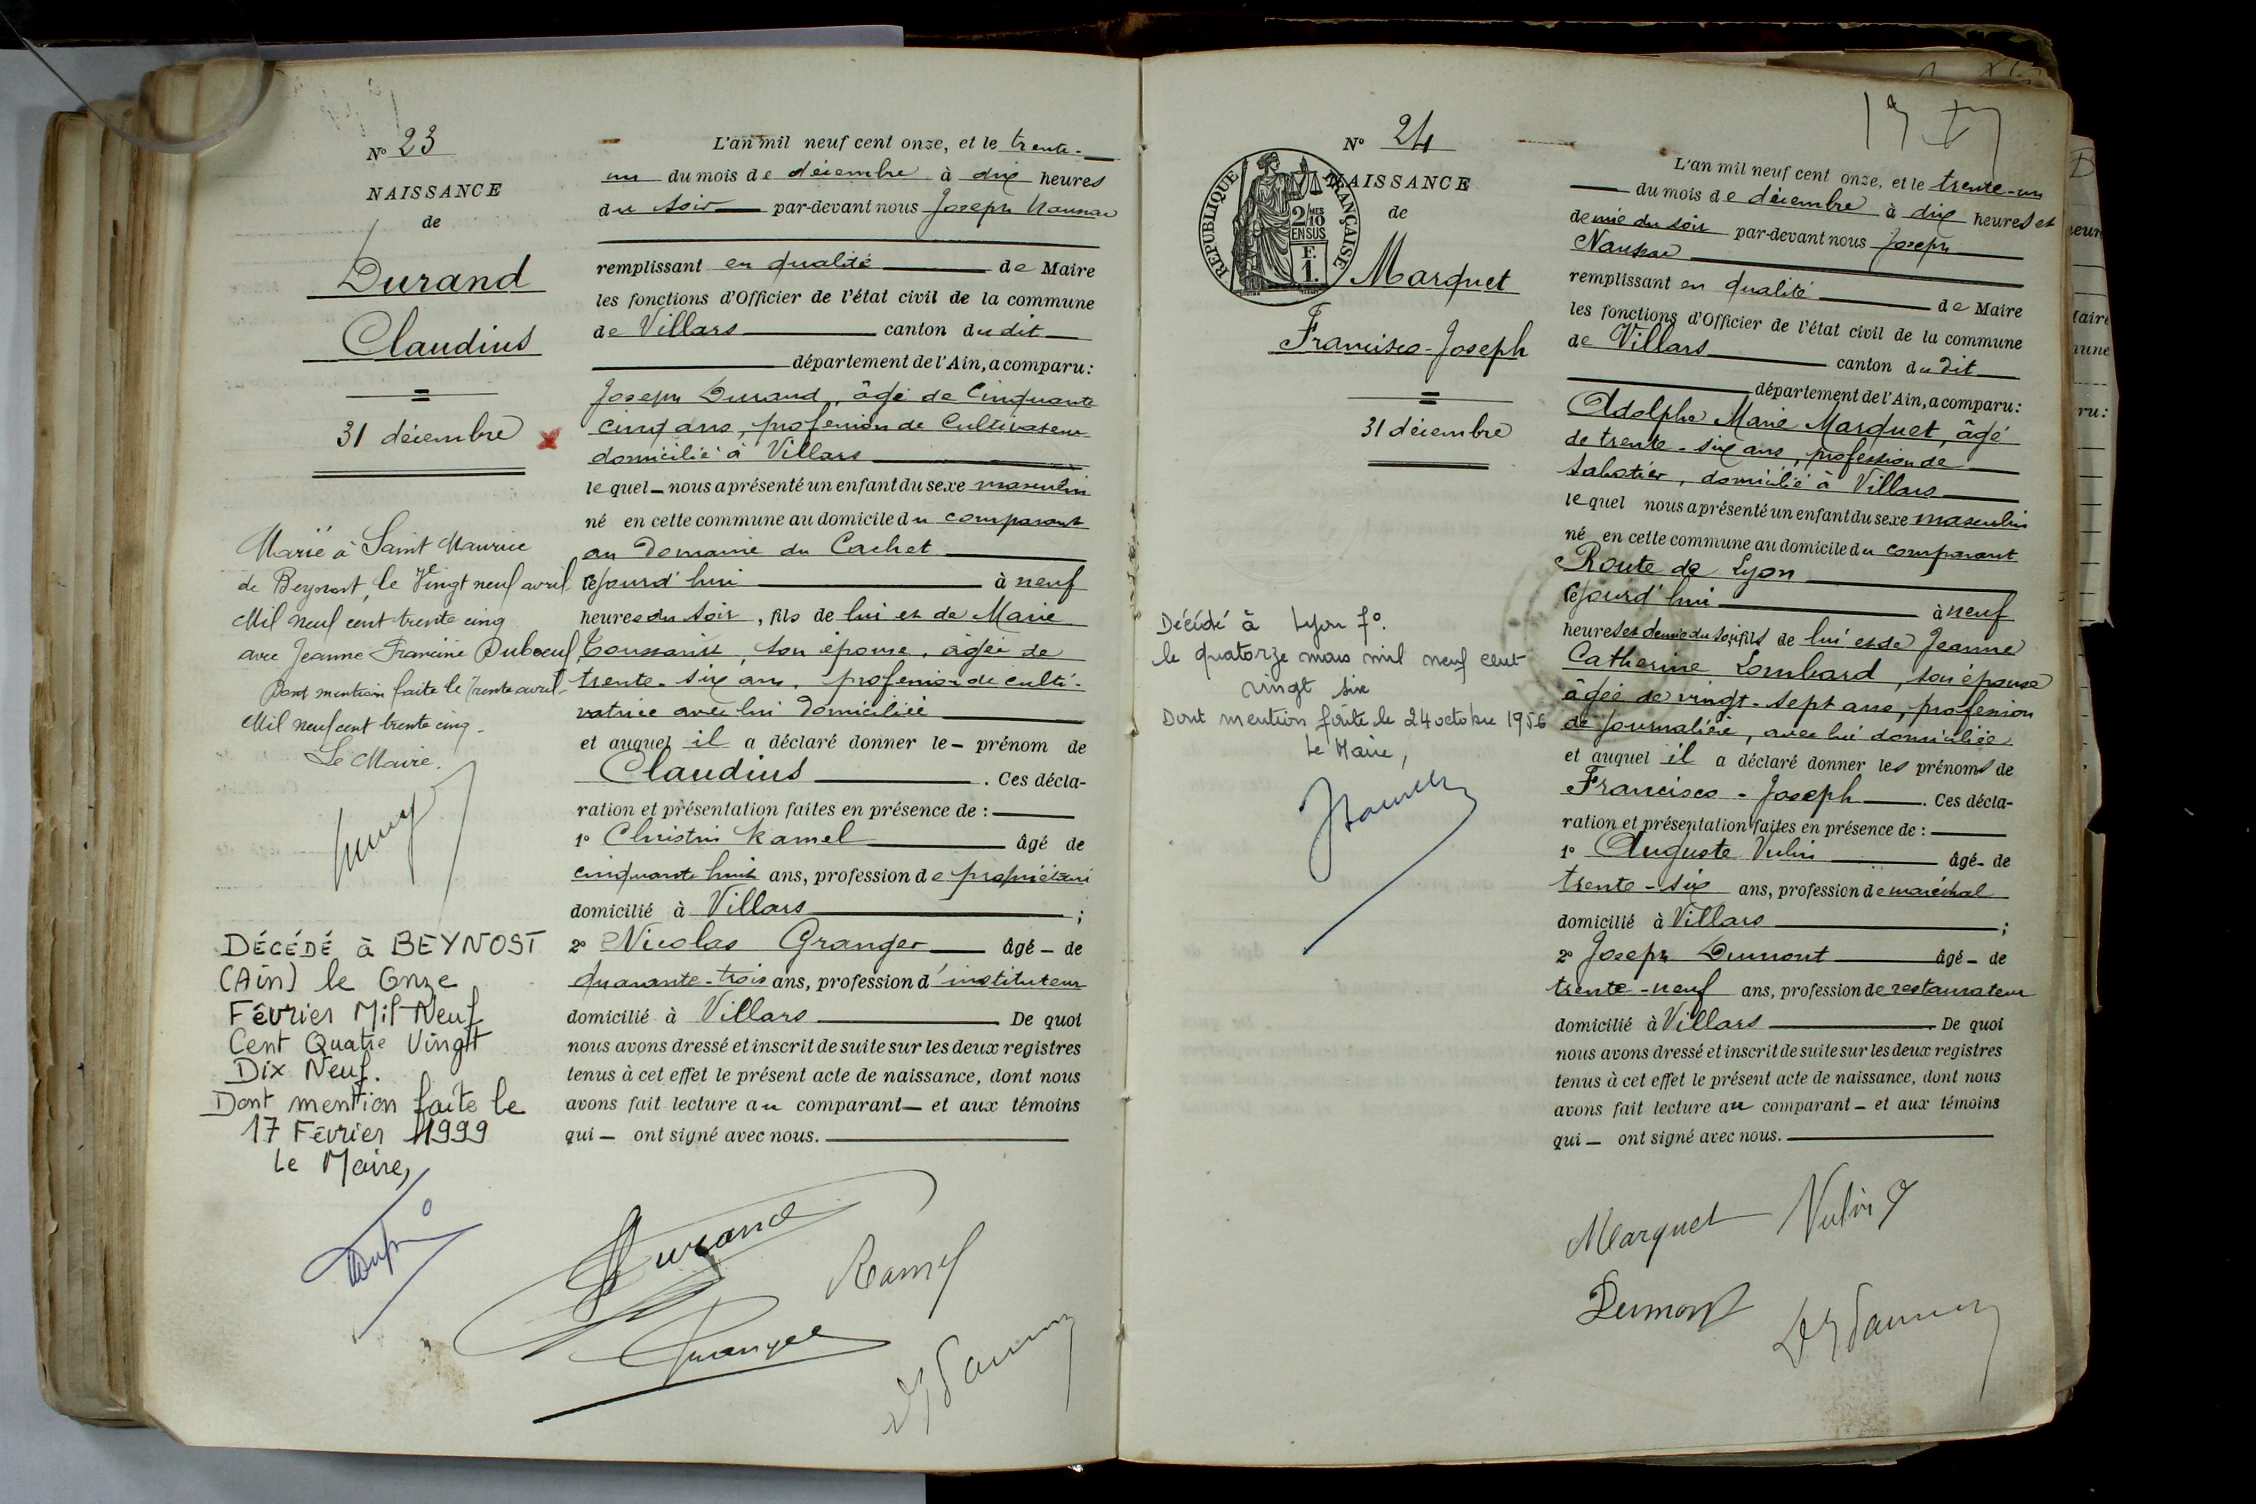 N° 23
NAISSANCE
de
Durand
Claudius
31 décembre
Marié à Saint Maurice
de Beynost, le Vingt neuf avril
Mil neuf cent trente cinq
avec Jeanne Francine Duboeuf
Dont mention faite le trente avril
Mil neuf cent trente cinq.
Le Maire.
DÉCÉDÉ à BEYNOST
(Ain) le Onze
Février Mil Neuf
Cent Quatre Vingt
Dix Neuf.
Dont mention faite le
17 Février 1999
Le Maire,
L'an mil neuf cent onze, et le trente-
un du mois de décembre à dix heures
du soir par-devant nous Joseph
remplissant en qualité de Maire
les fonctions d'Officier de l'état civil de la commune
de Villars canton du dit
département de l'Ain, a comparu:
Joseph Durand, âgé de Cinquante
cinq ans, profession de Cultivateur
domicilié à Villars
lequel nous a présenté un enfant du sexe masculin
né en cette commune au domicile du comparant
au Domaine du Cachet
cejourd'hui à neuf
heures du soir, fils de lui et de Marie
son épouse, âgée de
trente-six ans, profession de culti-
vatrice avec lui domiciliée
et auquel il a déclaré donner le prénom de
Claudius. Ces décla-
ration et présentation faites en présence de :
1° Christin Ramel âgé de
cinquante huit ans, profession de propriétaire
domicilié à Villars ;
2° Nicolas Granger âgé de
quarante-trois ans, profession d'instituteur
domicilié à Villars De quoi
nous avons dressé et inscrit de suite sur les deux registres
tenus à cet effet le présent acte de naissance, dont nous
avons fait lecture au comparant et aux témoins
qui ont signé avec nous.
Durand
Ramel
Granger
N° 24
NAISSANCE
de
RÉPUBLIQUE FRANÇAISE
2/10 MES
EN SUS
F.
1.
Marquet
Francisco-Joseph
31 décembre
Décédé à Lyon 7°.
le quatorze mars mil neuf cent
vingt six
Dont mention faite le 24 octobre 1956
Le Maire,
L'an mil neuf cent onze, et le trente-un
du mois de décembre à dix heures et
demie du soir par-devant nous Joseph
remplissant en qualité de Maire
les fonctions d'Officier de l'état civil de la commune
de Villars canton du dit
département de l'Ain, a comparu:
Adolphe Marie Marquet, âgé
de trente-six ans, profession de
sabotier, domicilié à Villars
lequel nous a présenté un enfant du sexe masculin
né en cette commune au domicile du comparant
Route de Lyon
cejourd'hui à neuf
heures et demie du soir, fils de lui et de Jeanne
Catherine Lombard, son épouse
âgée de vingt-sept ans, profession
de journalière, avec lui domiciliée
et auquel il a déclaré donner les prénoms de
Francisco-Joseph. Ces décla-
ration et présentation faites en présence de :
1° Auguste Vulin âgé de
trente-six ans, profession de maréchal
domicilié à Villars ;
2° Joseph Dumont âgé de
trente-neuf ans, profession de restaurateur
domicilié à Villars De quoi
nous avons dressé et inscrit de suite sur les deux registres
tenus à cet effet le présent acte de naissance, dont nous
avons fait lecture au comparant et aux témoins
qui ont signé avec nous.
Marquet Vulin
Dumont